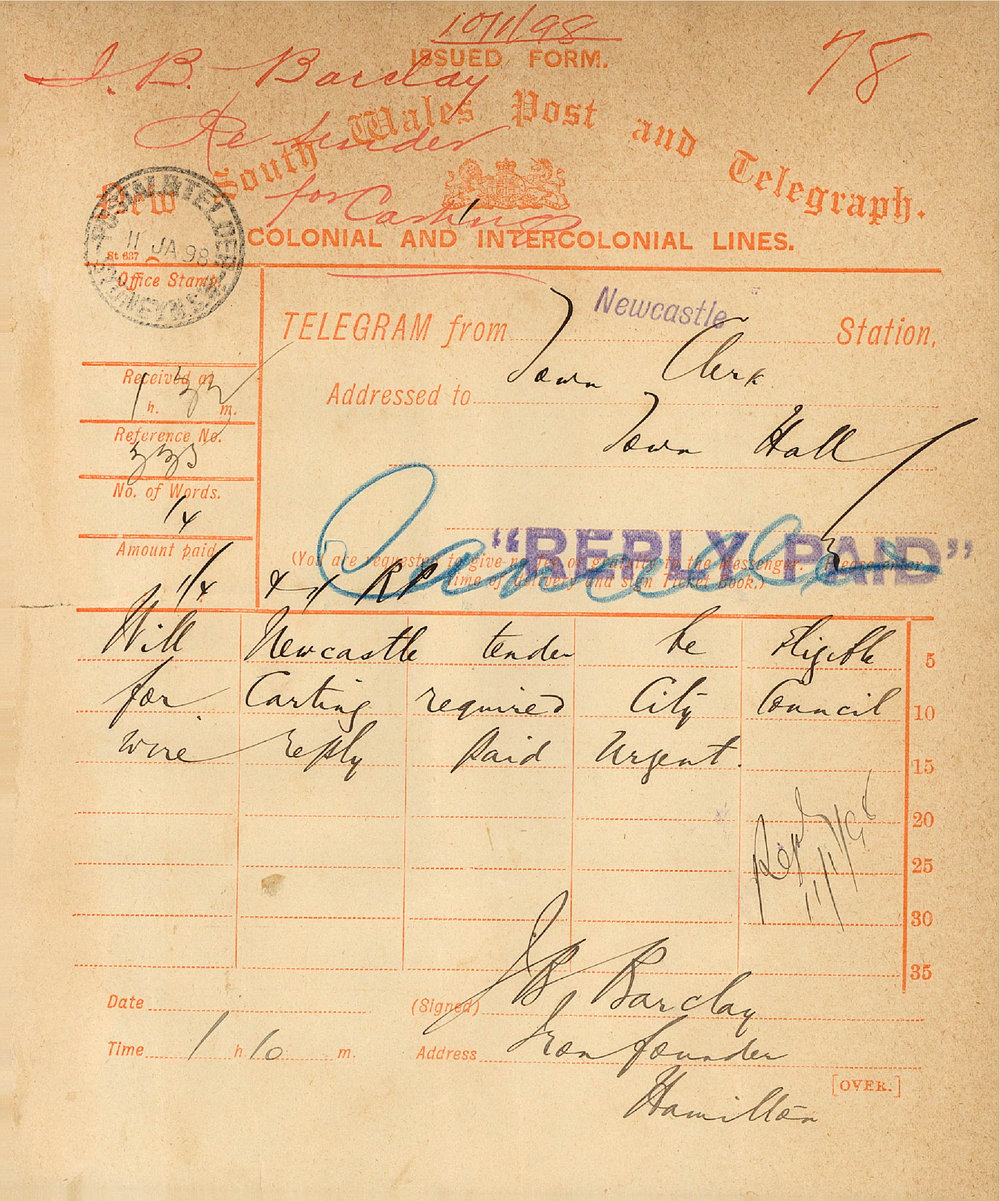 10/1/98
ISSUED FORM.
78
J. B. Barclay
Re tender
for Castings
New South Wales Post and Telegraph.
COLONIAL AND INTERCOLONIAL LINES.
POSTAL & TEL. DEP.
11 JA 98
SYDNEY N.S.W.
St 637
Office Stamp.
TELEGRAM from Newcastle Station,
Addressed to Town Clerk
Town Hall
Received at
1 h. 32 m.
Reference No.
333
No. of Words.
14
Amount paid
1/4 & 1/ RP
"REPLY PAID"
(You are requested to give no fee or gratuity to the Messenger. Please enter
Time of delivery and sign Ticket Book.)
Will Newcastle tender be Eligible 5
for Casting required City Council 10
wire reply paid Urgent. 15
20
25
30
35
Repd 11/1/98
Date
(Signed) J B Barclay
Time 1 h 10 m.
Address Iron founder
Hamilton
[OVER.]